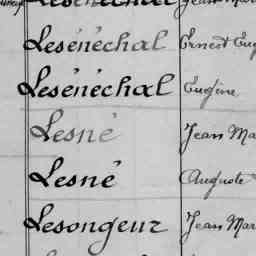 Lesénéchal Ernest Eug
Lesénéchal Eugène
Lesné Jean Ma
Lesné Auguste
Lesongeur Jean Mar